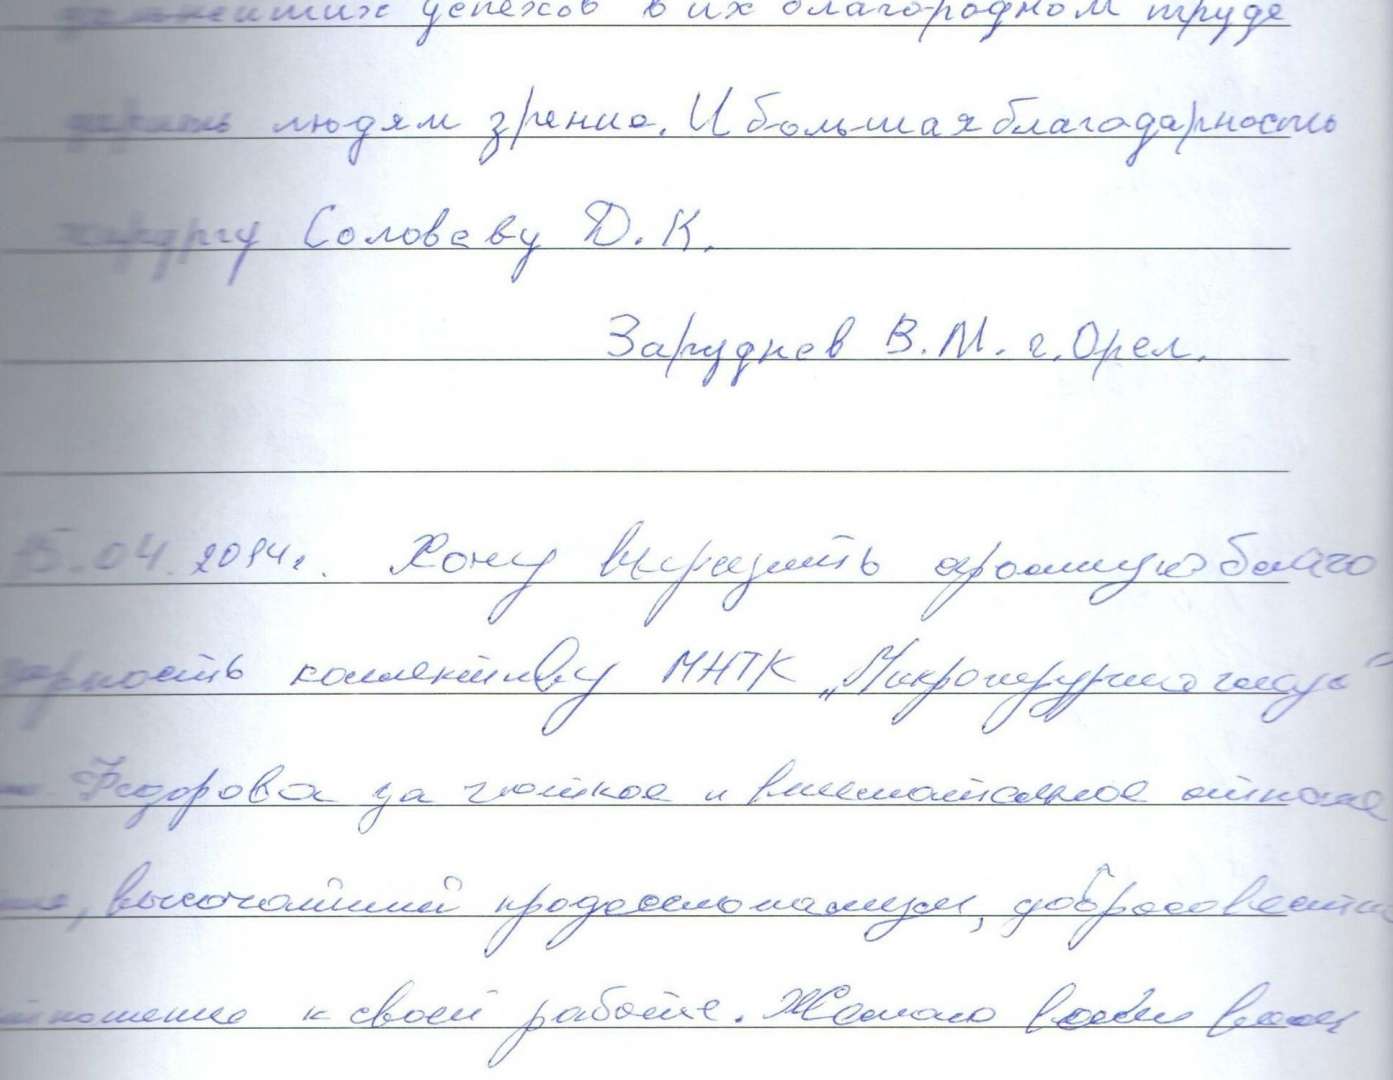 дальнейших успехов в их благородном труде
дарить людям зрение. И большая благодарность
хирургу Соловьеву Д.К.
Заруднев В.М. г.Орел.
15.04.2014г. Хочу выразить огромную благо
дарность коллективу МНТК „Микрохирургия глаза"
Федорова за чуткое и внимательное отноше
ние, высочайший профессионализм, добросовестное
отношение к своей работе. Желаю всем вам